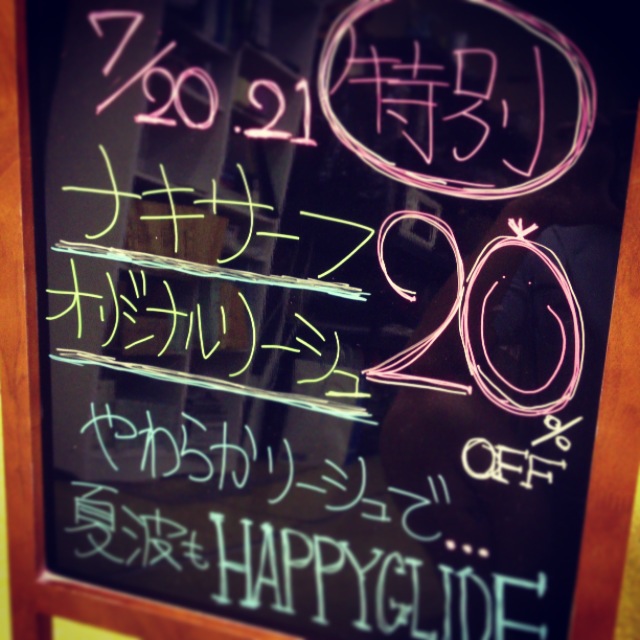 7/20.21 特別
ナキサーフ
オリジナルリーシュ
20%OFF
やわらかリーシュで...
夏波もHAPPYGLIDE